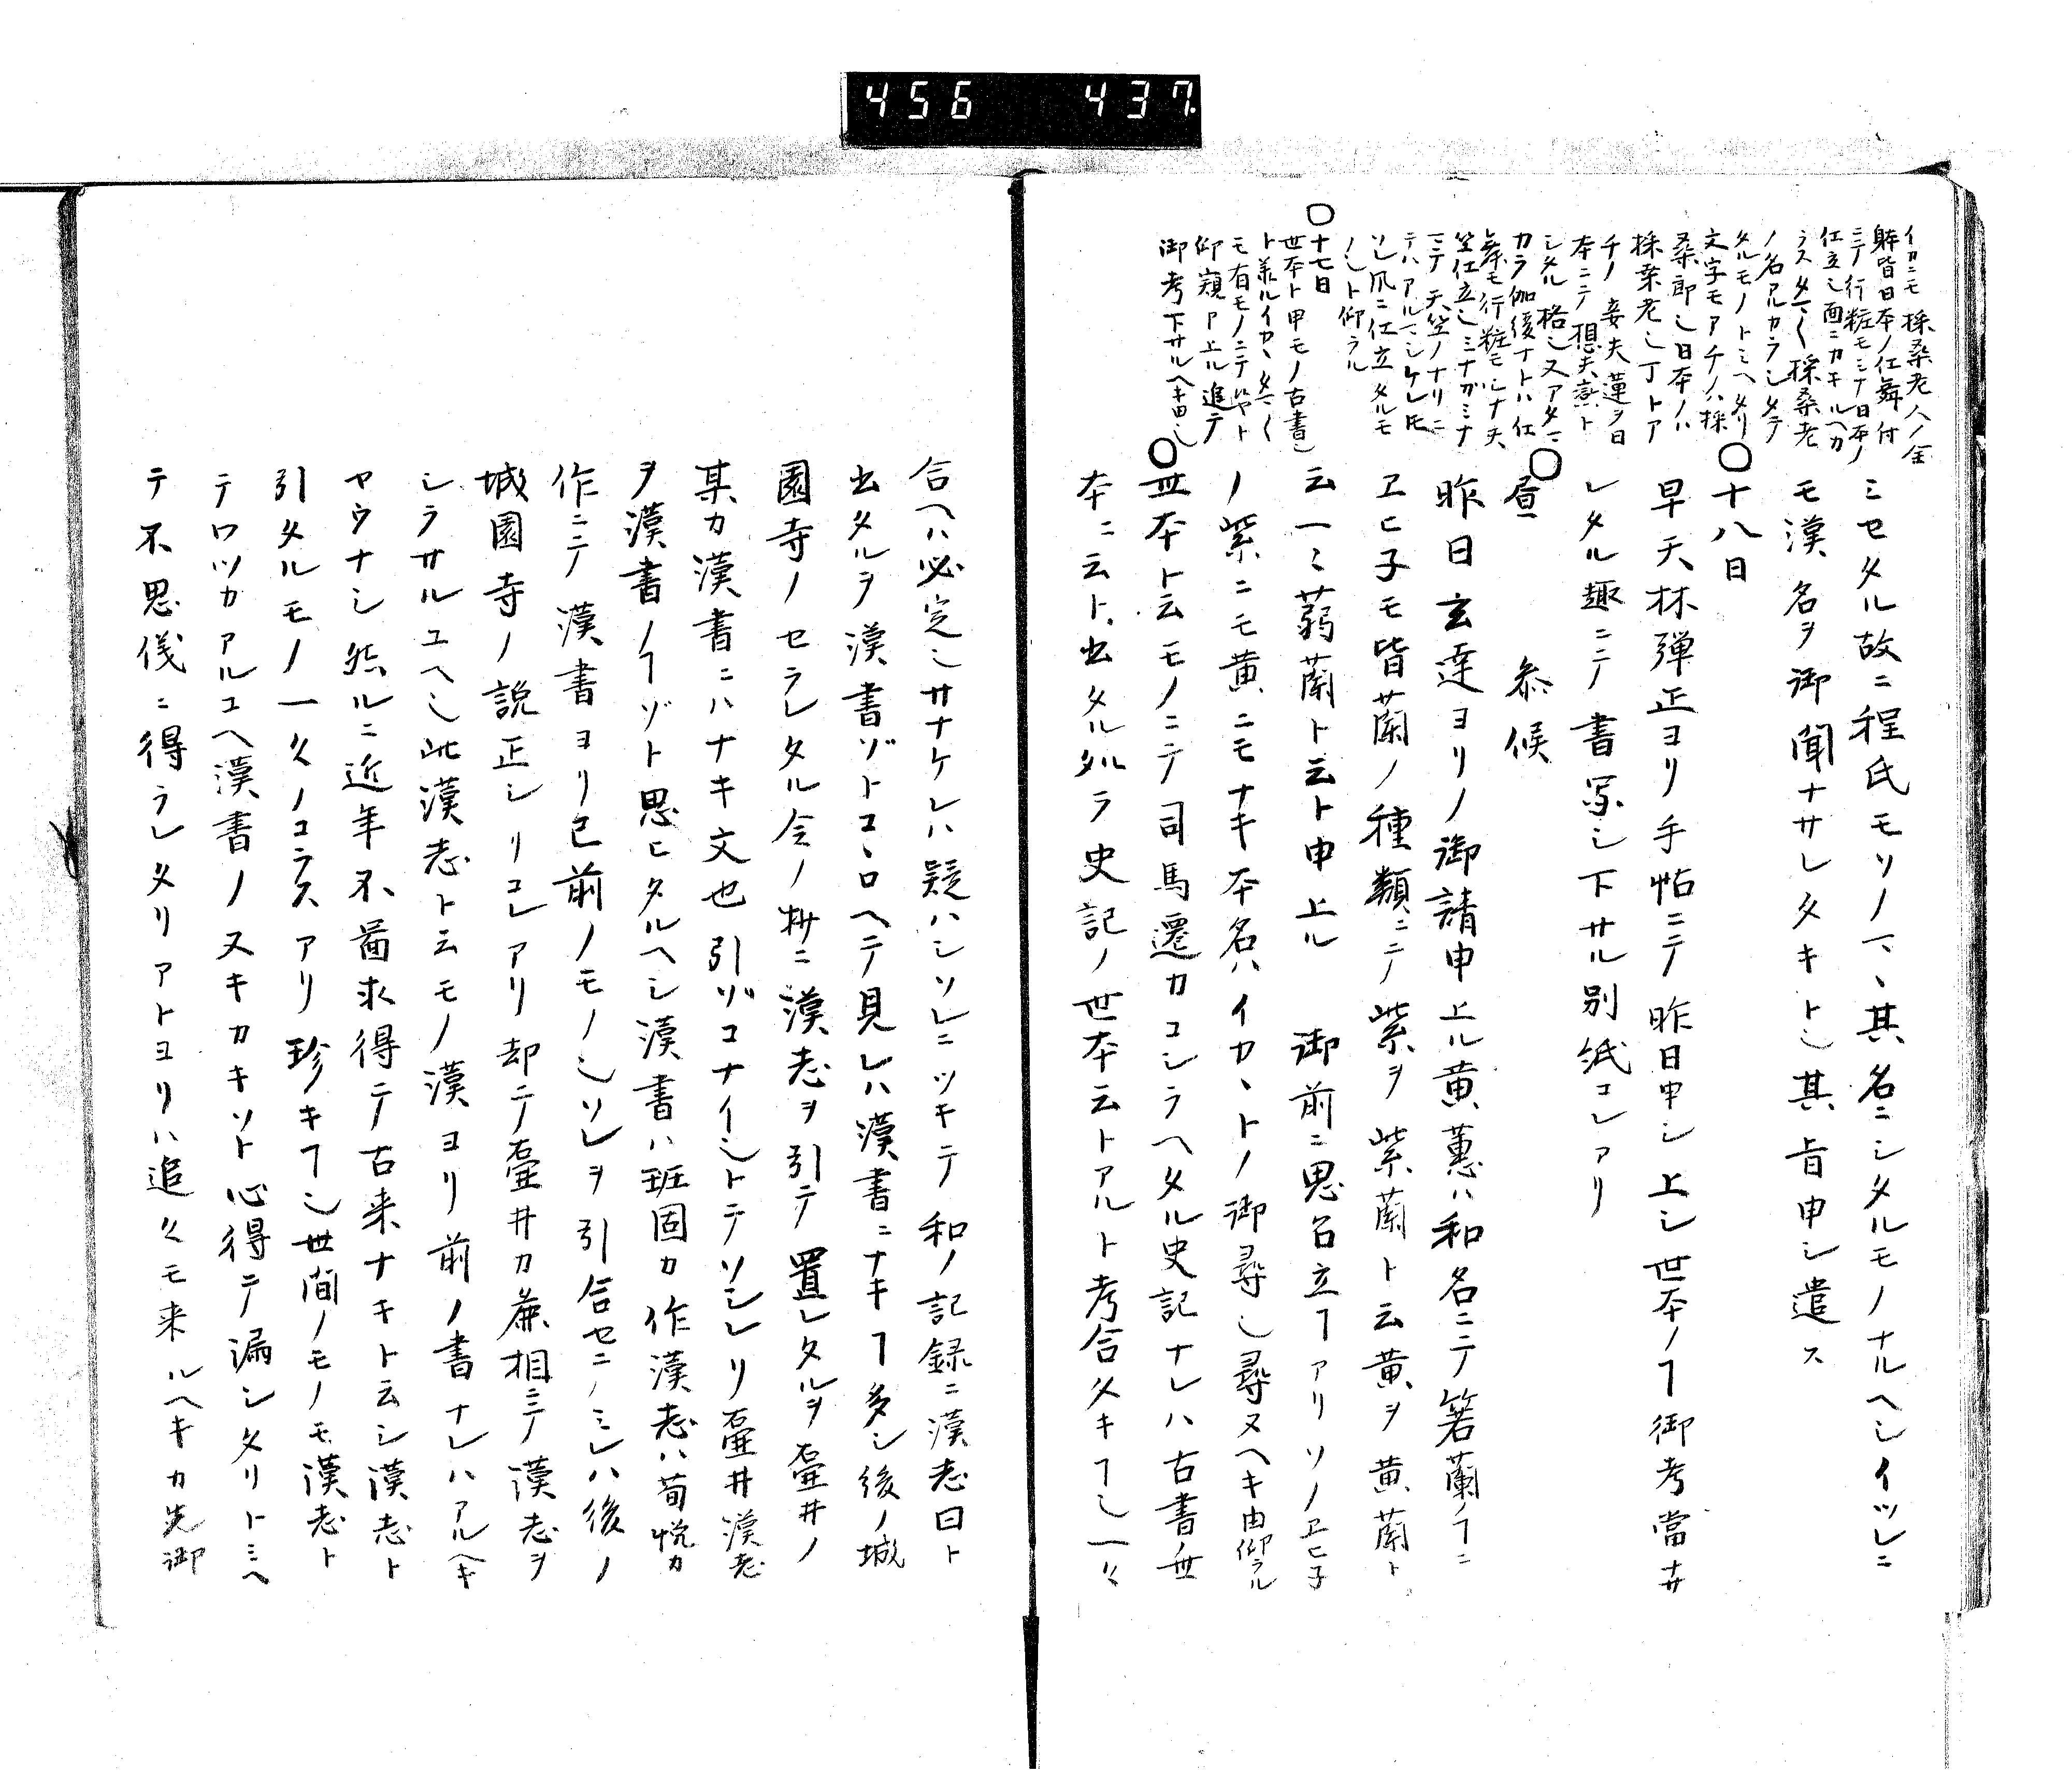 456 437
イカニモ採桑老人ノ全
躰皆日本ノ仕舞付
ニテ行粧モミナ日本ノ
仕立シ面ニカキルヘカ
ラス タマ〱採桑老
ノ名アルカラシタテ
タルモノトミヘタリ
文字モアチノハ採
桑郎シ日本ノハ
採桑老シ丁トア
チノ妾夫蓮ヲ日
本ニテ想夫憲ト
シタル格シ又アタマ
カラ伽僂ナトハ仕
舞モ行粧モミナ天
竺仕立シミナガミナ
マテ天竺ノナリニ
テハアルマシケレ𪜈
ソレ爪ニ仕立タルモ
ノシト仰ラル
〇十七日
世本ト申モノ古書シ
ト承ルイカヽタマ〱
モ有モノニテ候ヤト
仰窺ア上ル追テ
御考下サルヘキ由シ
ミセタル故ニ程氏モリノマヽ其名ニシタルモノナルヘシイツレニ
モ漢名ヲ御聞ナサレタキトシ其旨申シ遣ス
〇十八日
早天林弾正ヨリ手帖ニテ昨日申シ上シ世本ノヿ御考當ナサ
レタル趣ニテ書写シ下サル別紙コレアリ
〇昼 参候
昨日玄達ヨリノ御請申上ル黄蕙ハ和名ニテ箬蘭ノヿニ
ヱヒ子モ皆蘭ノ種類ニテ紫ヲ紫蘭ト云黄ヲ黄蘭ト
云一ミ蒻蘭ト云ト申上ル 御前ニ思召立ヿアリソノヱヒ子
ノ紫ニモ黄ニモナキ本名ハイカヽトノ御尋シ尋ヌヘキ由仰ラル
〇世本ト云モノニテ司馬遷カコシラヘタル史記ナレハ古書ノ世
本ニ云ト出タルタルラ史記ノ世本云トアルト考合スキヿシ一々
合ヘハ必定シサナケレハ疑ハシソレニツキテ和ノ記録ニ漢志曰ト
出タルヲ漢書ゾトコヽロヘテ見レハ漢書ニナキヿ多シ後ノ城
園寺ノセラレタル令ノ抍ニ漢志ヲ引テ置レタルヲ壷井ノ
某カ漢書ニハナキ文也引ゾコナイシトテソシレリ壷井漢志
ヲ漢書ノヿゾト思ヒタルヘシ漢書ハ班固カ作漢志ハ荀悦カ
作ニテ漢書ヨリ已前ノモノシソレヲ引合セニノミレハ後ノ
城園寺ノ説正シリコレアリ却テ壷井カ麁相ミテ漢志ヲ
シラサルユヘシ此漢志ト云モノ漢ヨリ前ノ書ナレハアルヘキ
ヤウナシ然ルニ近年不啚求得テ古来ナキト云シ漢志ト
引タルモノ一々ノコラスアリ珍キヿシ世間ノモノモ漢志ト
テロツカアルユヘ漢書ノヌキカキソト心得テ漏シタリトミヘ
テ不思儀ニ得ラレタリアトヨリハ追々モ来ルヘキカ先御